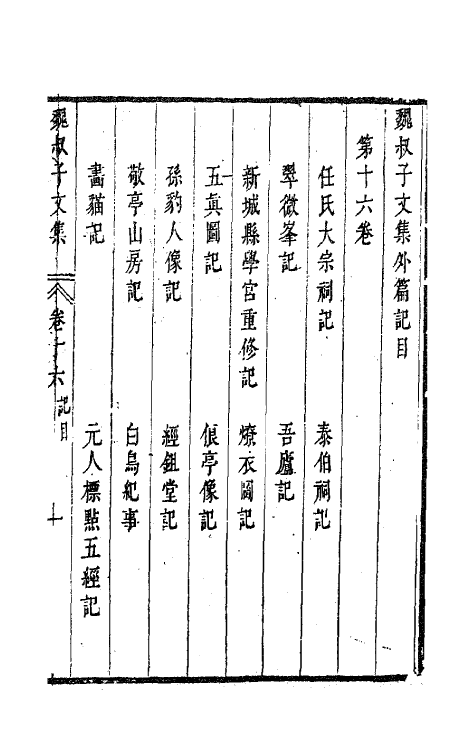 魏叔子文集外篇記目
第十六卷
任氏大宗祠記 泰伯祠記
翠微峯記 吾廬記
新城縣學宮重修記 燎衣圖記
五眞圖記 俍亭像記
孫豹人像記 經鉏堂記
敬亭山房記 白鳥紀事
畫貓記 元人標點五經記
魏叔子文集 卷十六 記目